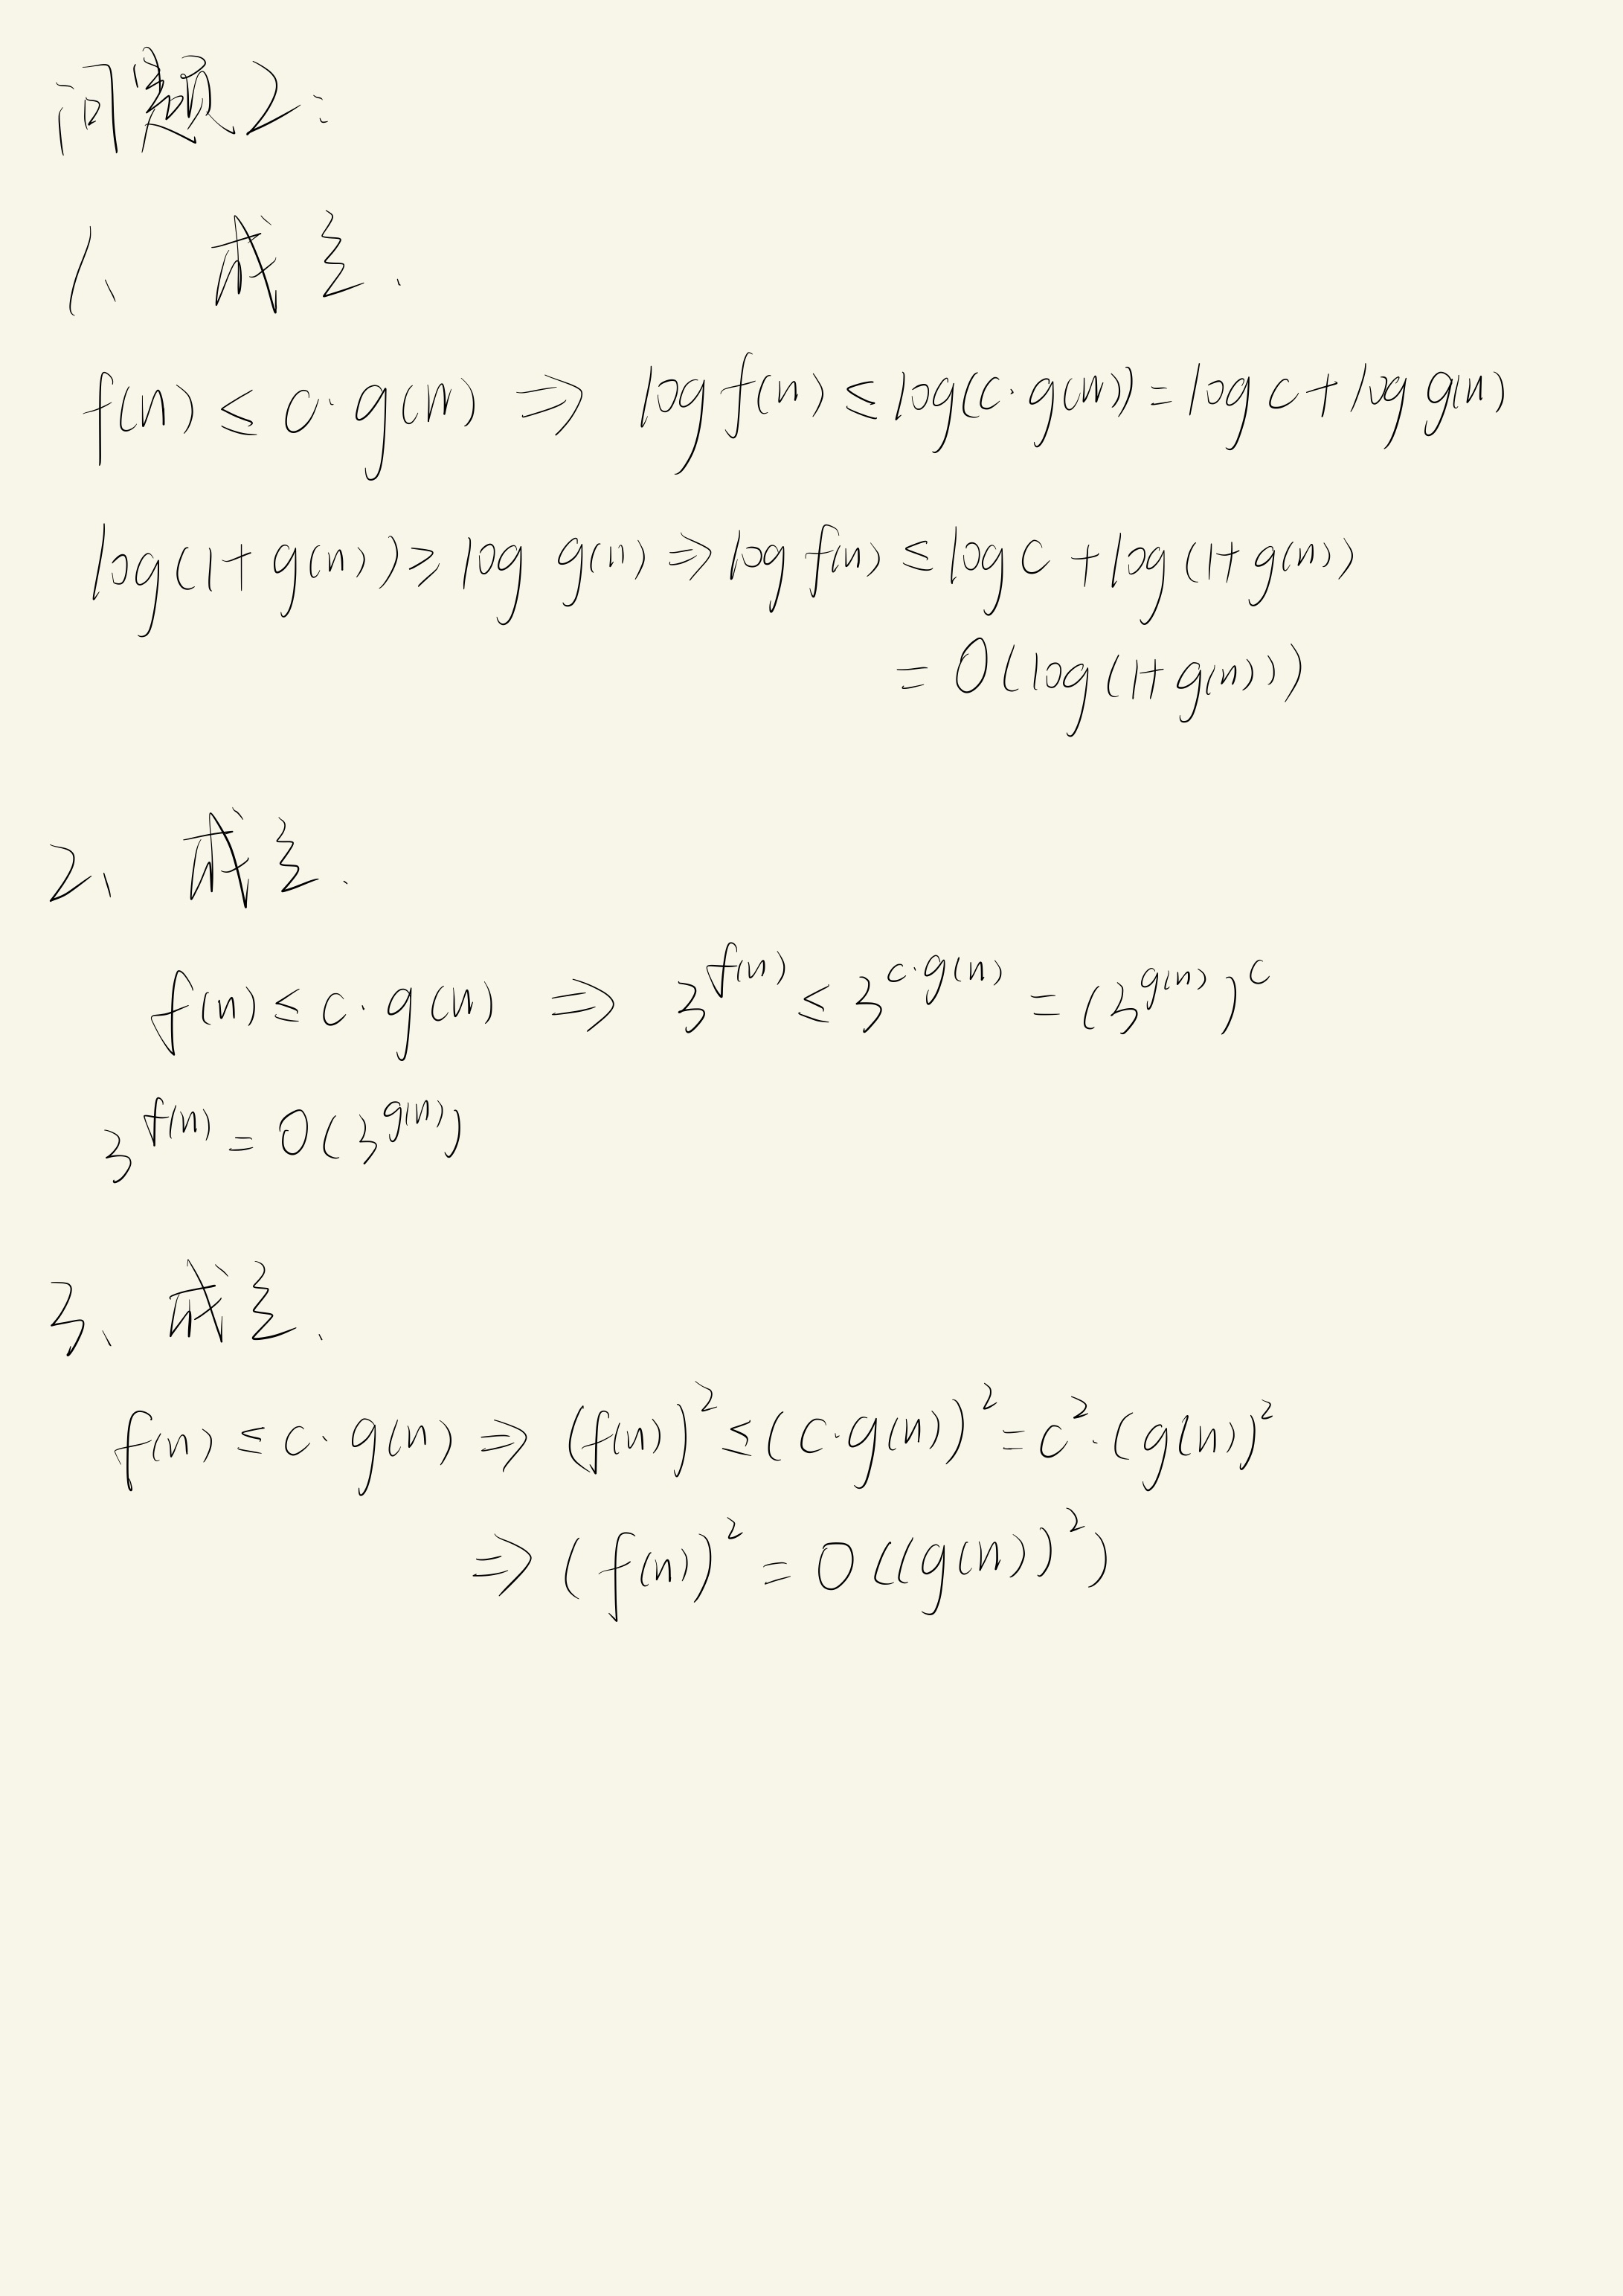 问题2:
1、 成立.
f(n) ≤ c·g(n) ⇒ log f(n) ≤ log(c·g(n)) = log c + log g(n)
log(1+g(n)) ≥ log g(n) ⇒ log f(n) ≤ log c + log(1+g(n))
= O(log(1+g(n)))
2、 成立.
f(n) ≤ c·g(n) ⇒ 3^{f(n)} ≤ 3^{c·g(n)} = (3^{g(n)})^c
3^{f(n)} = O(3^{g(n)})
3、 成立.
f(n) ≤ c·g(n) ⇒ (f(n))² ≤ (c·g(n))² = c²·(g(n))²
⇒ (f(n))² = O((g(n))²)